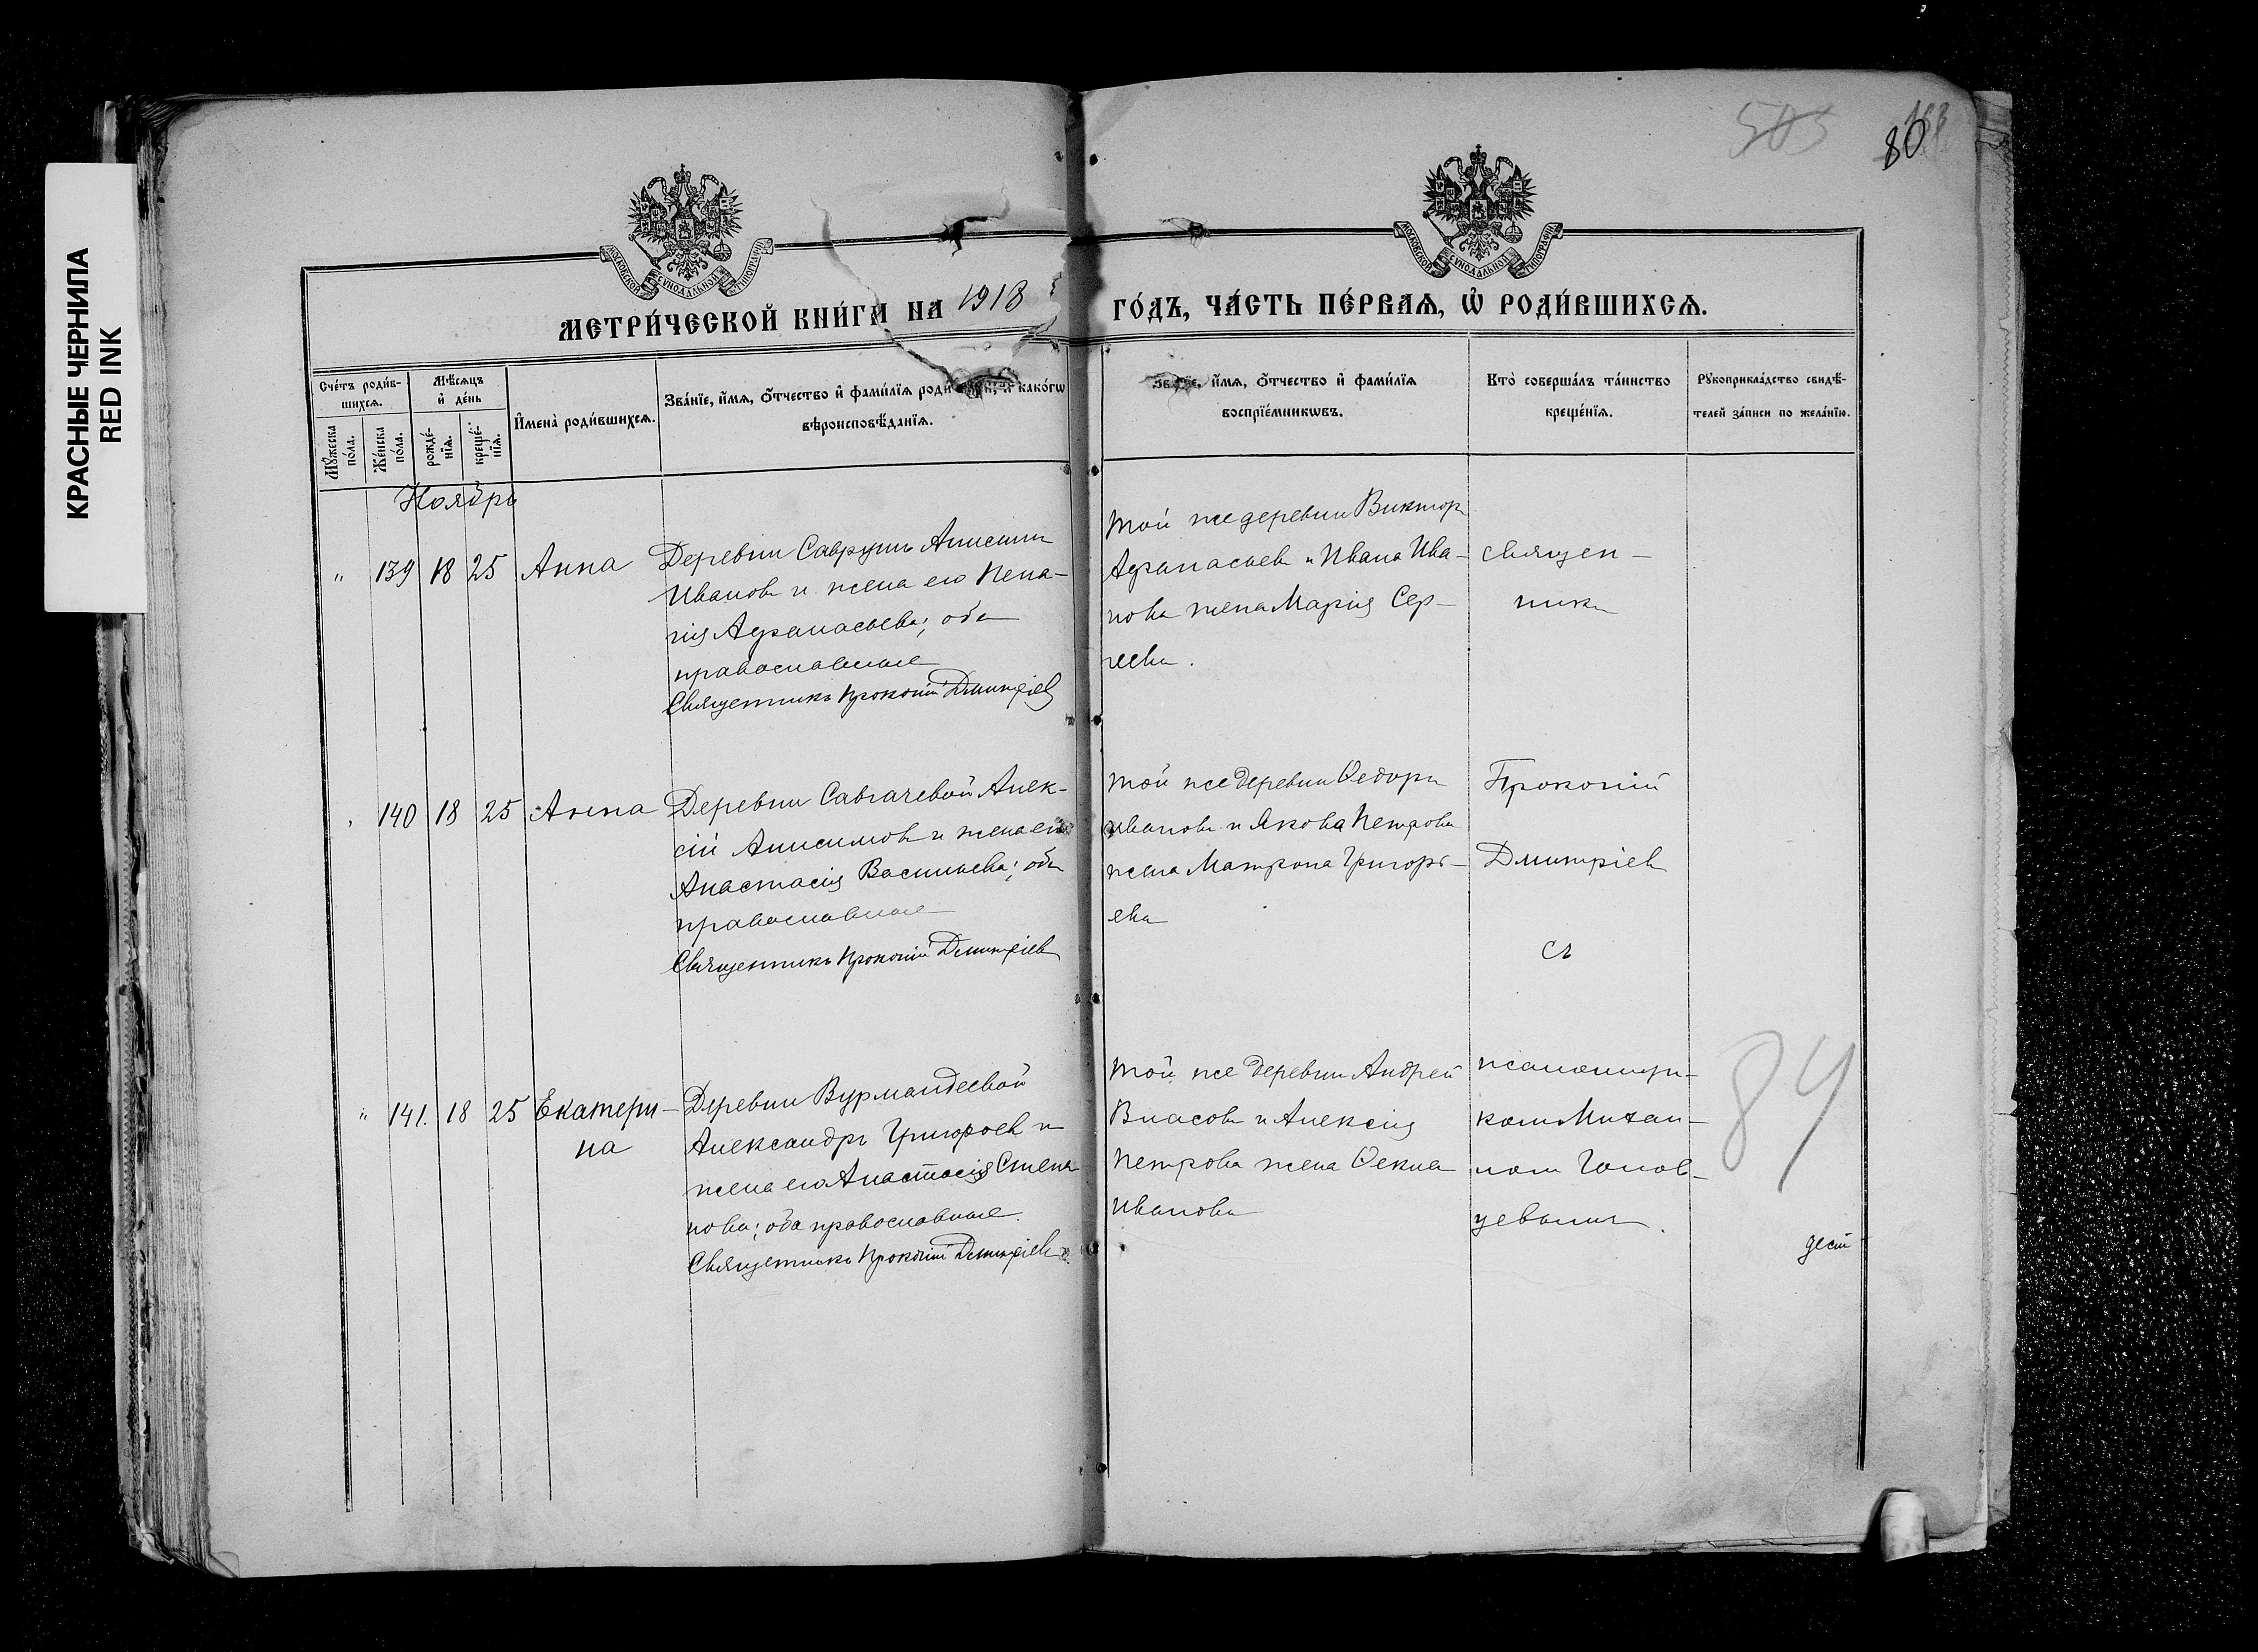 КРАСНЫЕ ЧЕРНИЛА
RED INK
505
80
МОСКОВСКОЙ СУНОДАЛЬНОЙ ТИПОГРАФІИ
МОСКОВСКОЙ СУНОДАЛЬНОЙ ТИПОГРАФІИ
МЕТРИ́ЧЕСКОЙ КНИ́ГИ НА 1918
ГО́ДЪ, ЧА́СТЬ ПЕ́РВАѦ, Ѽ РОДИ́ВШИХСѦ.
Сче́тъ роди́в-
шихсѧ.
Мꙋ́жеска
по́ла.
Же́нска
по́ла.
Мѣ́сѧцъ
и҆ де́нь
рожде́-
нїѧ.
креще́-
нїѧ.
И҆мена̀ роди́вшихсѧ.
Зва́нїе, и҆́мѧ, ѻ҆́тчество и҆ фами́лїѧ роди како́гѡ
вѣроисповѣ́данїѧ.
Зва́нїе, и҆́мѧ, ѻ҆́тчество и҆ фами́лїѧ
воспрїе́мникѡвъ.
Кто̀ соверша́лъ та́инство
креще́нїѧ.
Рꙋкоприкла́дство свидѣ́-
телей за́писи по жела́нїю.
Ноябрь
" 139 18 25 Анна
Деревни Саврушъ Анисим
Иванов и жена его Пела-
гія Афанасьева; оба
православные
Священникъ Прокопій Дмитріев
Той же деревни Виктор
Афанасьев и Ивана Ива-
нова жена Марія Сер-
геева.
священ-
никъ
140 18 25 Анна
Деревни Савгачевой Алек-
сій Анисимов и жена его
Анастасія Васильева; оба
православные
Священникъ Прокопій Дмитріев
Той же деревни Ѳедоръ
Иванов и Якова Петрова
жена Матрона Григорь-
ева
Прокопій
Дмитріев
съ
" 141. 18 25 Екатери-
на
Деревни Вурмандеевой
Александръ Григорьев и
жена его Анастасія Степа-
нова; оба православные.
Священникъ Прокопій Дмитріев
Той же деревни Андрей
Власов и Алексія
Петрова жена Ѳекла
Иванова
псаломщи-
комъ Михаи-
лом Голов-
цевым.
84